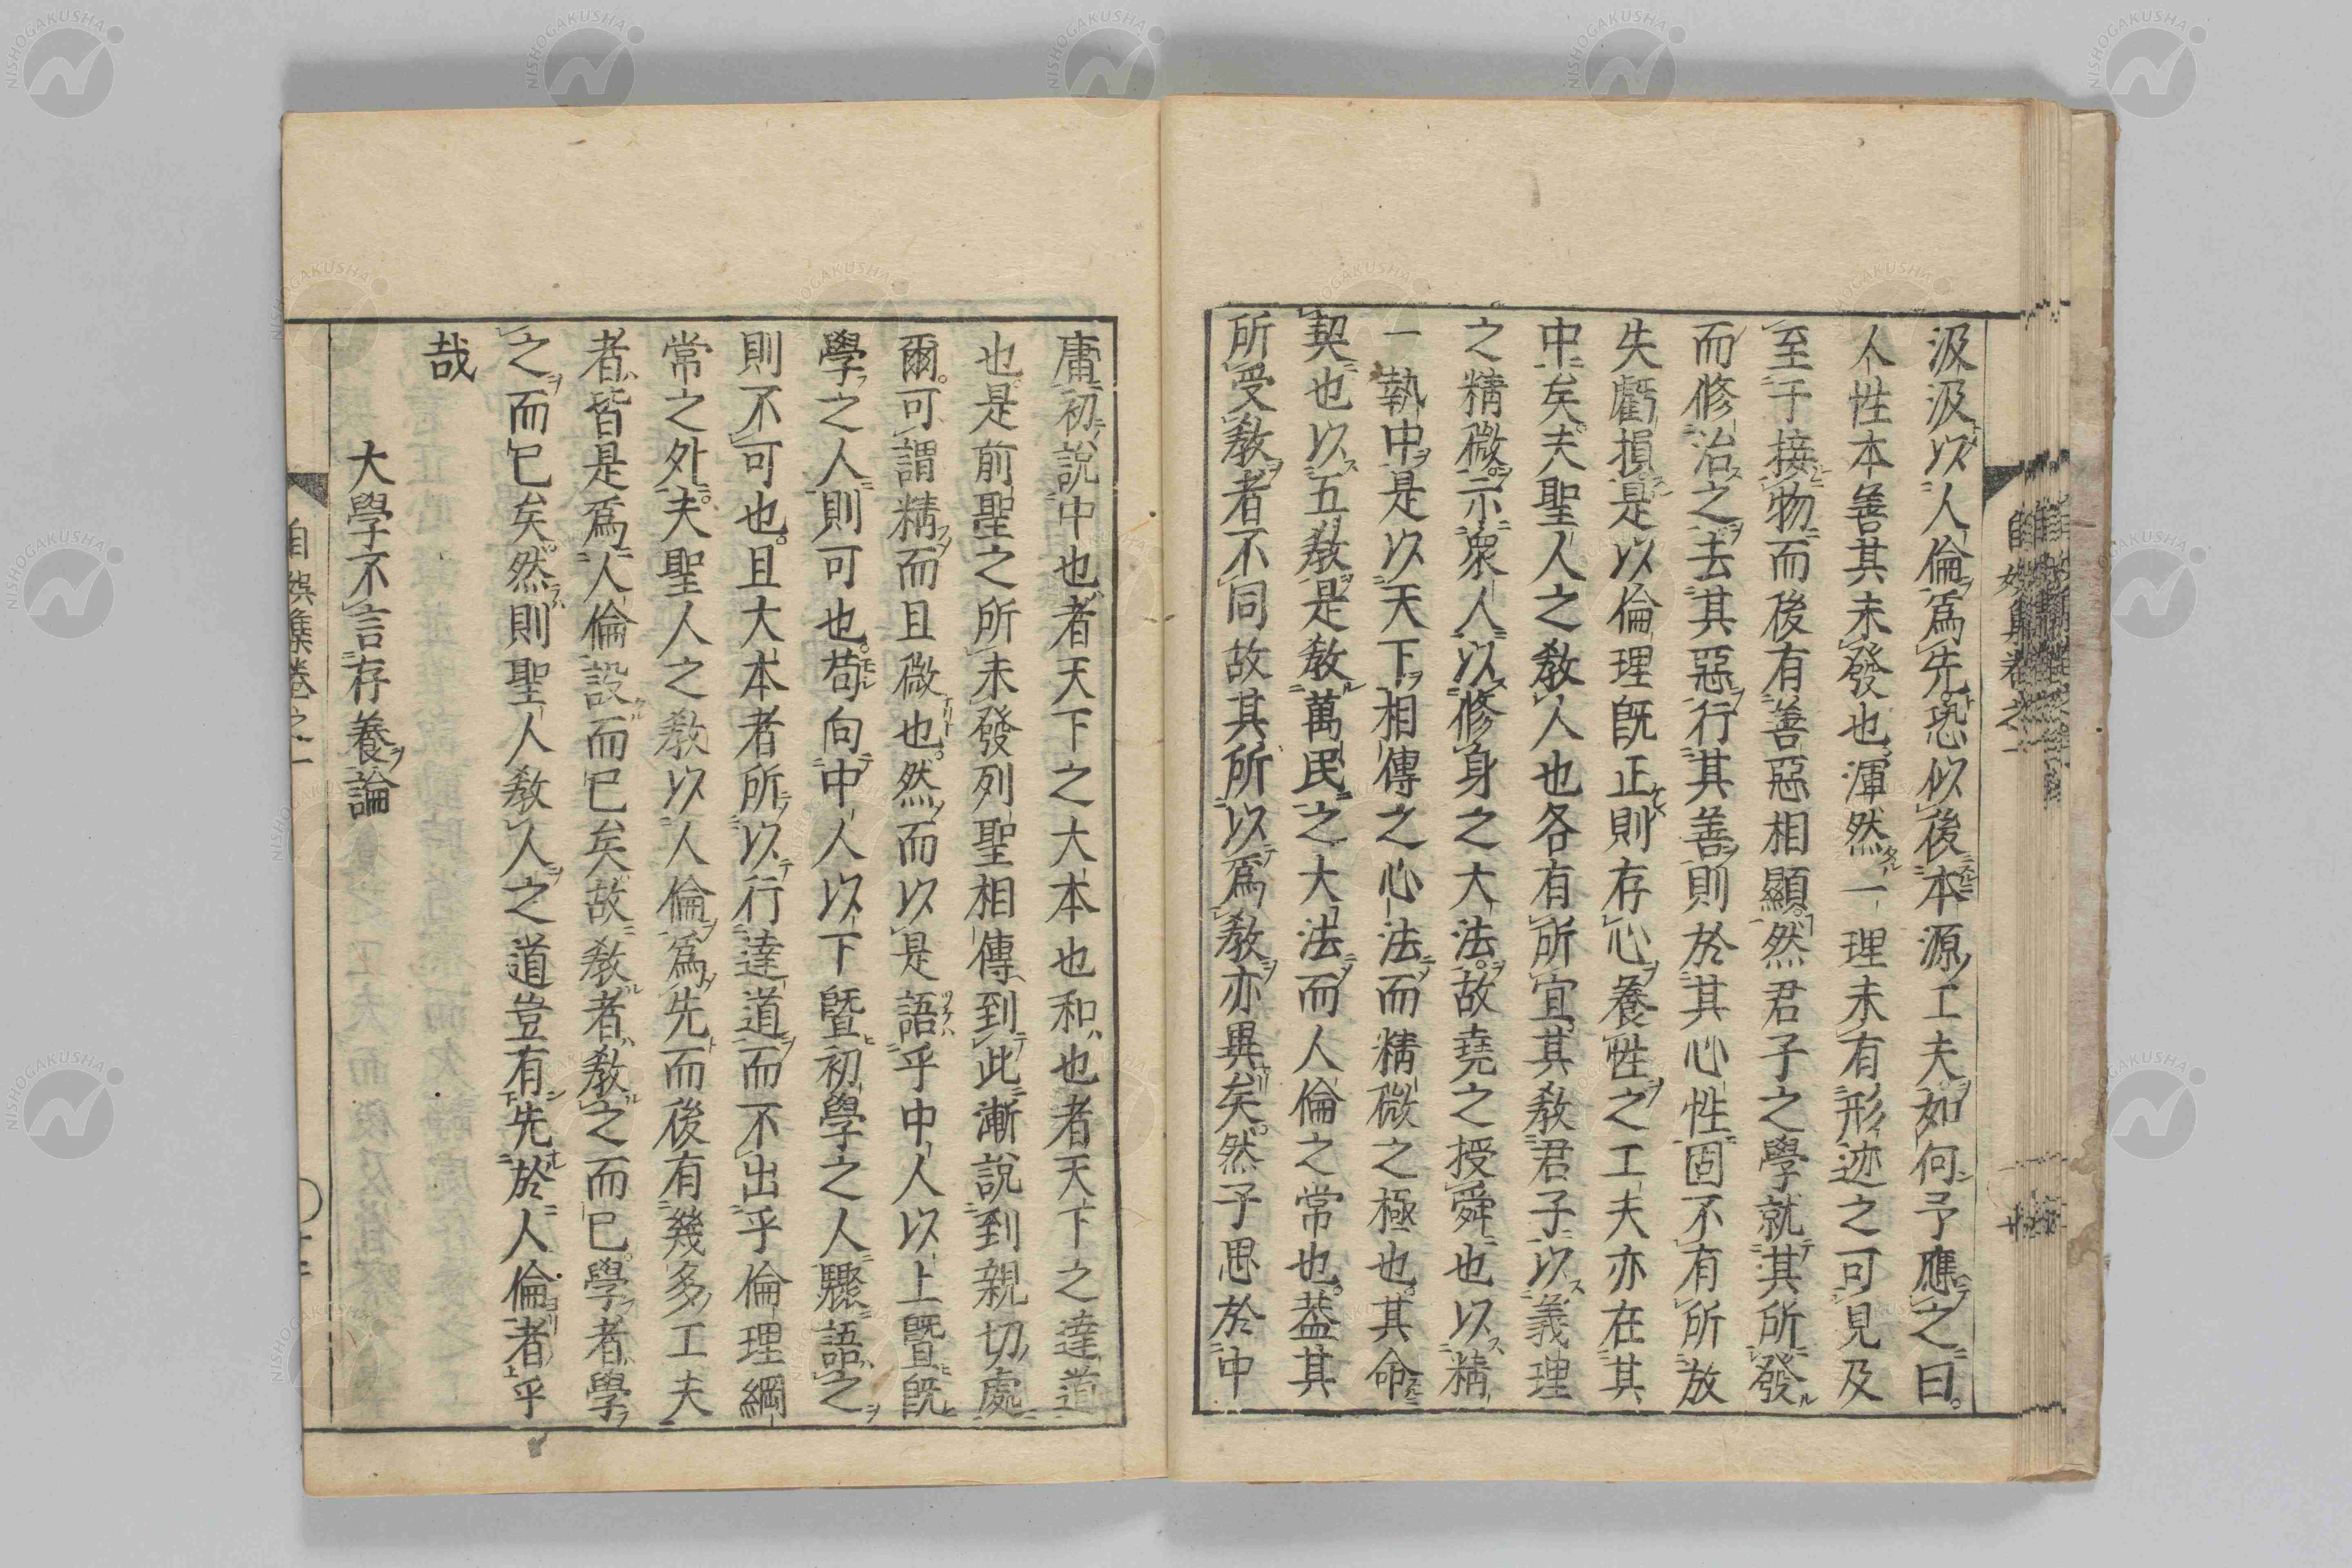 汲汲以人倫爲先恐似後本源工夫如何予應之曰
人性本善其未發也渾然一理未有形迹之可見及
至于接物而後有善惡相顯然君子之學就其所發
而修治之去其惡行其善則於其心性固不有所放
失虧損是以倫理既正則存心養性之工夫亦在其
中矣夫聖人之教人也各有所宜其教君子以義理
之精微示衆人以修身之大法故堯之授舜也以精
一執中是以天下相傳之心法而精微之極也其命
契也以五教是教萬民之大法而人倫之常也蓋其
所受教者不同故其所以爲教亦異矣然子思於中
庸初說中也者天下之大本也和也者天下之達道
也是前聖之所未發列聖相傳到此漸說到親切處
爾可謂精而且微也然而以是語乎中人以上曁既
學之人則可也苟向中人以下曁初學之人驟語之
則不可也且大本者所以行達道而不出乎倫理綱
常之外夫聖人之教以人倫爲先而後有幾多工夫
者皆是爲人倫設而已矣故教者教之而已學者學
之而已矣然則聖人教人之道豈有先於人倫者乎
哉
大學不言存養論
自娛集卷之一